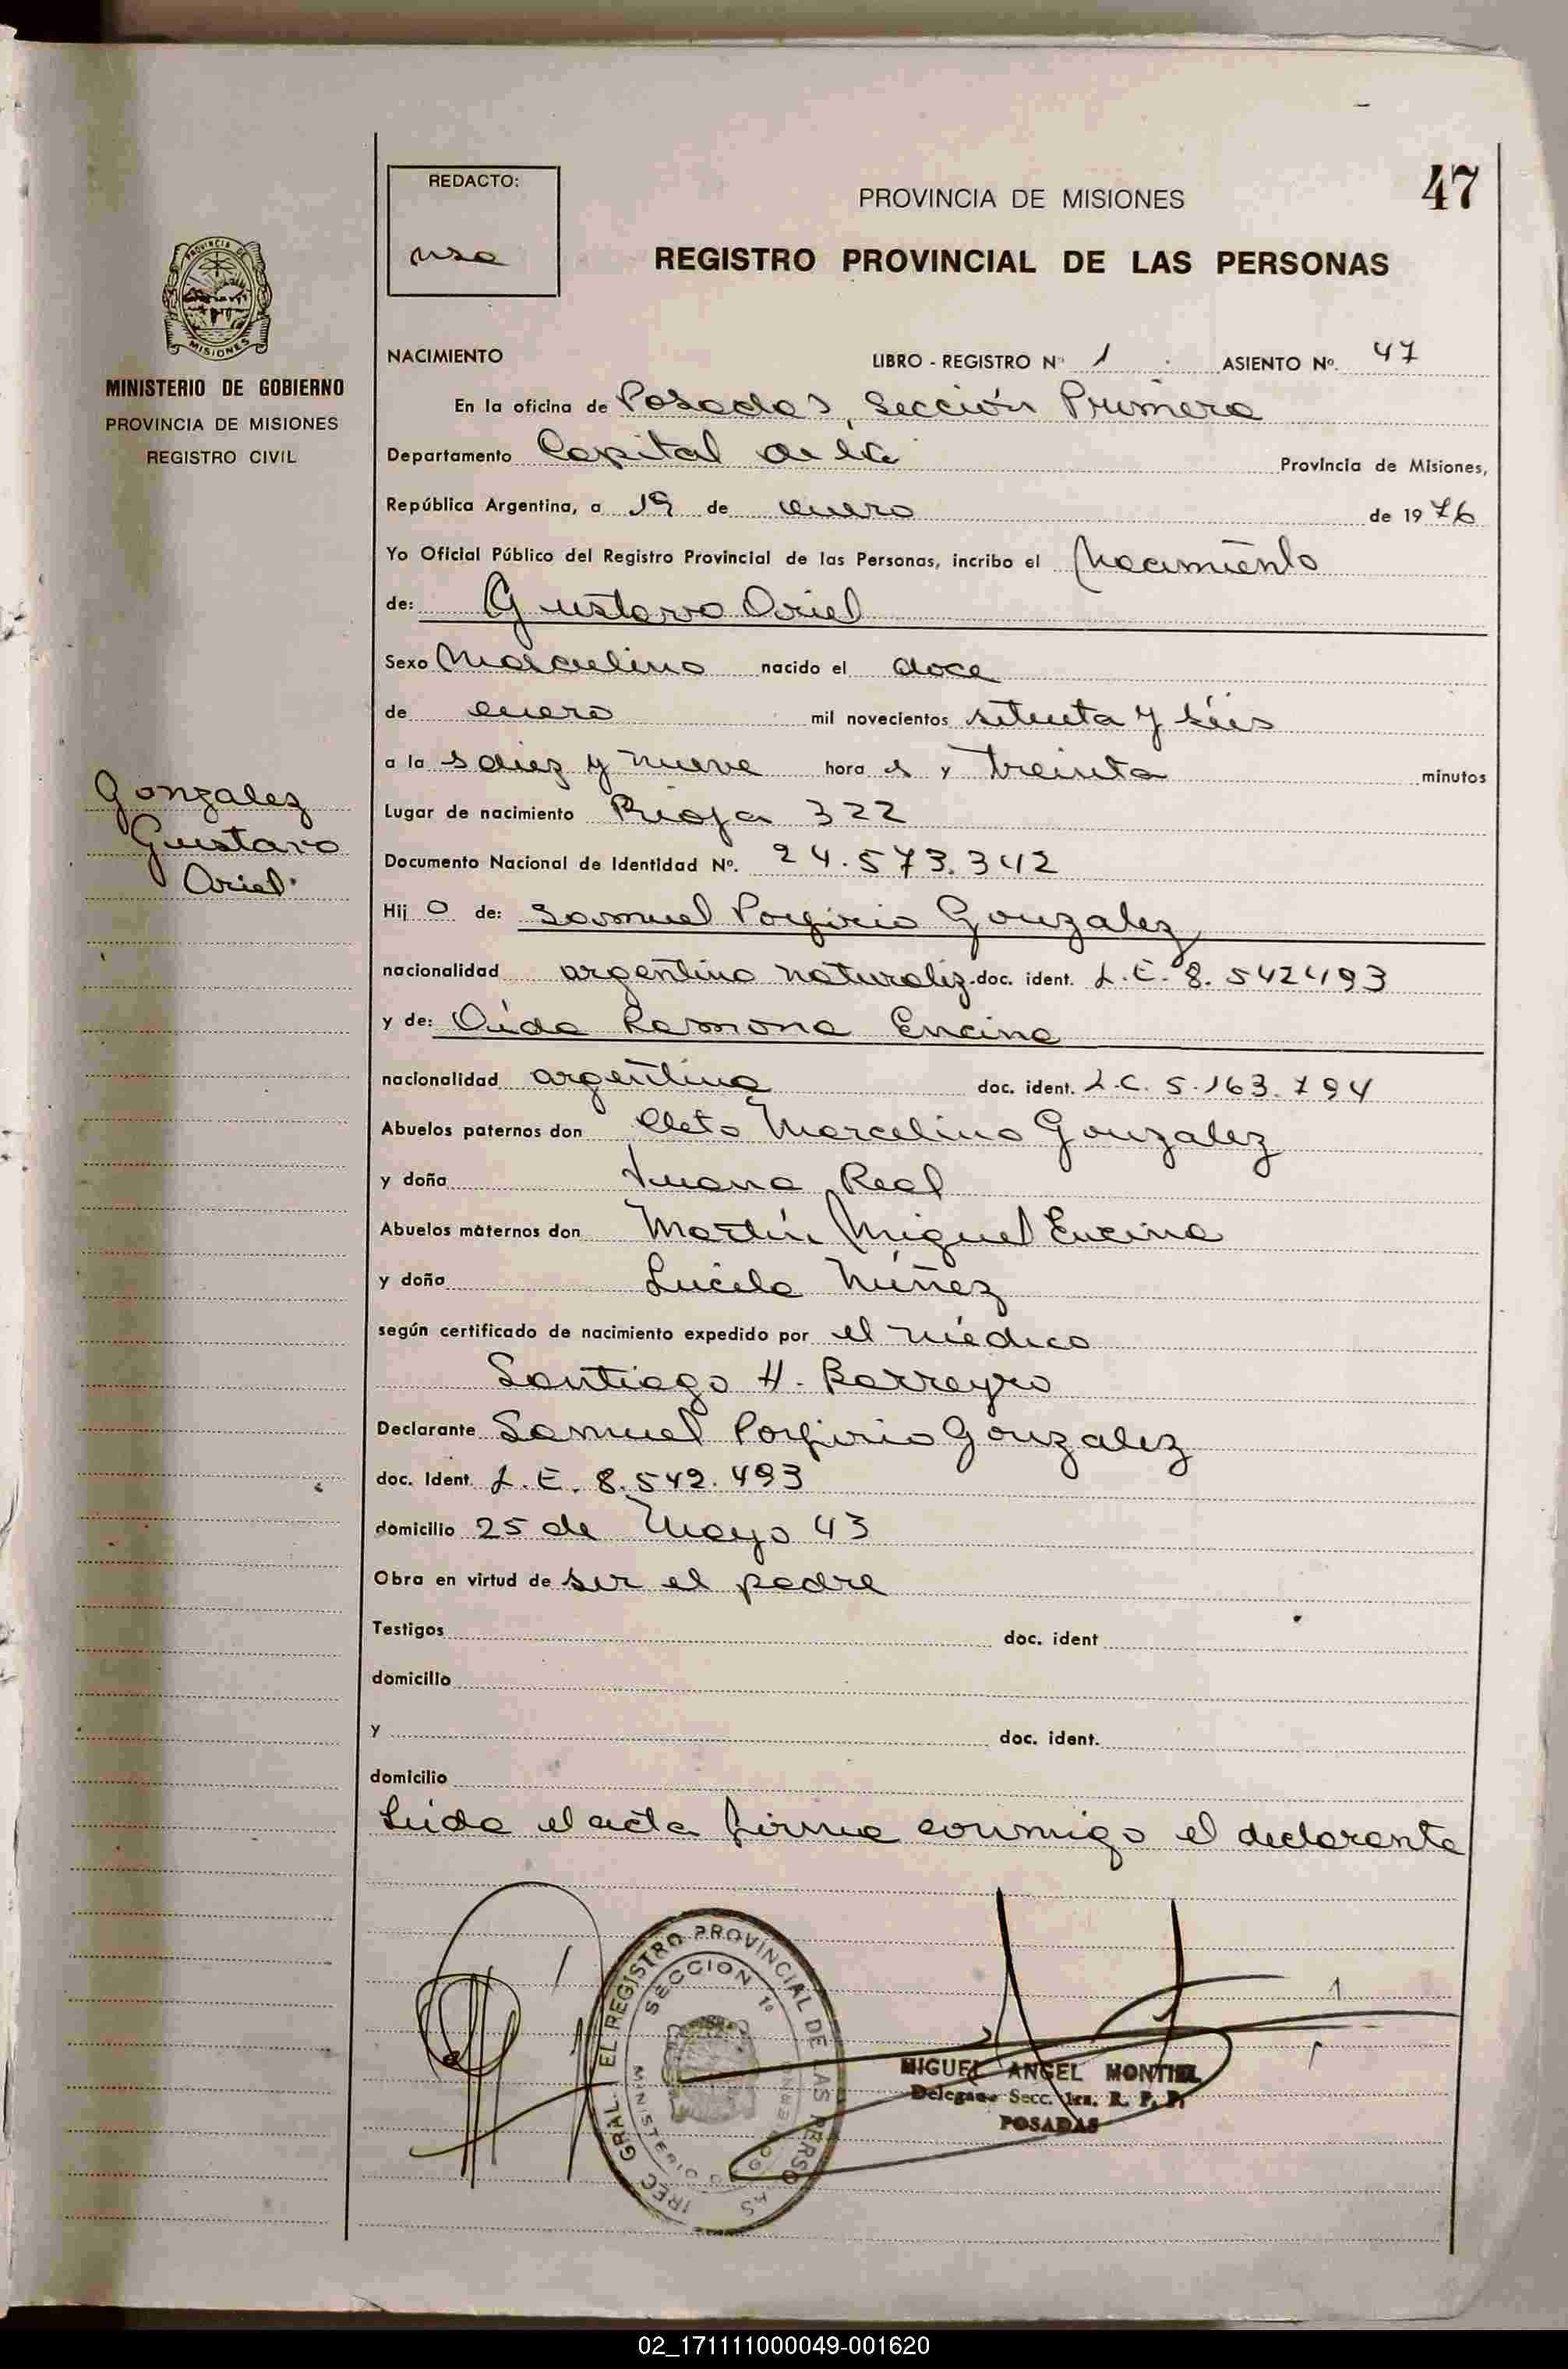 47
REDACTO:
PROVINCIA DE MISIONES
REGISTRO PROVINCIAL DE LAS PERSONAS
PROVINCIA DE
MISIONES
MINISTERIO DE GOBIERNO
PROVINCIA DE MISIONES
REGISTRO CIVIL
Gonzalez
Gustavo
Oriel
NACIMIENTO LIBRO - REGISTRO Nº 1 ASIENTO Nº. 47
En la oficina de Posadas, Sección Primera
Departamento Capital de la Provincia de Misiones,
República Argentina, a 19 de enero de 1976
Yo Oficial Público del Registro Provincial de las Personas, incribo el Nacimiento
de: Gustavo Oriel
Sexo Masculino nacido el doce
de enero mil novecientos setenta y séis
a la s diez y nueve hora s y treinta minutos
Lugar de nacimiento Rioja 322
Documento Nacional de Identidad Nº. 24.573.342
Hij o de: Samuel Porfirio Gonzalez
nacionalidad argentino naturaliz. doc. ident. L.E. 8.542493
y de: Ramona Encina
nacionalidad argentina doc. ident. L.C. 5.163.794
Abuelos paternos don Cleto Marcelino Gonzalez
y doña Juana Real
Abuelos maternos don Martín Miguel Encina
y doña Lucila Núñez
según certificado de nacimiento expedido por el médico
Santiago H. Barreyro
Declarante Samuel Porfirio Gonzalez
doc. Ident. L.E. 8.542.493
domicilio 25 de Mayo 43
Obra en virtud de ser el padre
Testigos doc. ident
domicilio
y doc. ident.
domicilio
Leida el acta firma conmigo el declarante
IREC GRAL. EL REGISTRO PROVINCIAL DE LAS PERSO AS
SECCION 1º
MINISTERIO
MIGUEL ANGEL MONTIEL
Delegado Secc. 1ra. R. P. P.
POSADAS
02_171111000049-001620